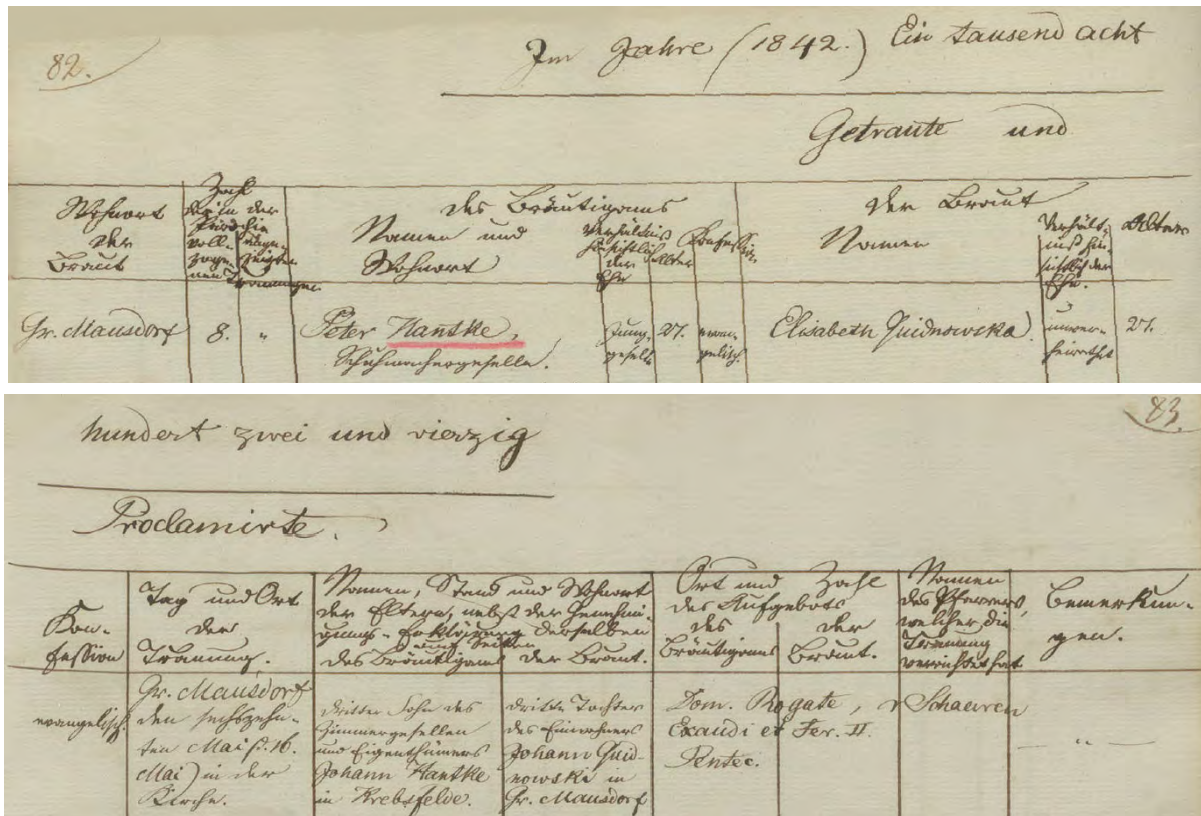 82.
Im Jahre (1842.) Ein tausend acht
Getraute und
Wohnort
der
Braut
Zahl
der in der
Parochie
voll-
zoge-
nen
ange-
zeigten
Trauungen
des Bräutigams
Namen und
Wohnort
Verhältniß
hinsichtlich
der
Ehe
Alter
Konfession
der Braut
Namen
Verhält-
niß hin-
sichtlich der
Ehe.
Alter
Gr. Mausdorf
8.
"
Peter Hantke,
Schuhmachergeselle.
Jung-
gesell
27.
evan-
gelisch
Elisabeth
unver-
heirathet
27.
83.
hundert zwei und vierzig
Proclamirte.
Kon-
fession
Tag und Ort
der
Trauung.
Namen, Stand und Wohnort
der Eltern, nebst der Genehmi-
gungs-Erklärung derselben
auf Seiten
des Bräutigams
der Braut.
Ort und Zahl
des Aufgebots
des
Bräutigams
der
Braut.
Namen
des Pfarrers,
welcher die
Trauung
verrichtet hat
Bemerkun-
gen.
evangelisch.
Gr. Mausdorf
den sechszehn-
ten Mai d. 16.
Mai) in der
Kirche.
dritter Sohn des
Zimmergesellen
und Eigenthümers
Johann Hantke
in Krebsfelde.
dritte Tochter
des Einwohners
Johann
nowski in
Gr. Mausdorf
Dom. Rogate,
Exaudi et Fer. II.
Pentec.
"